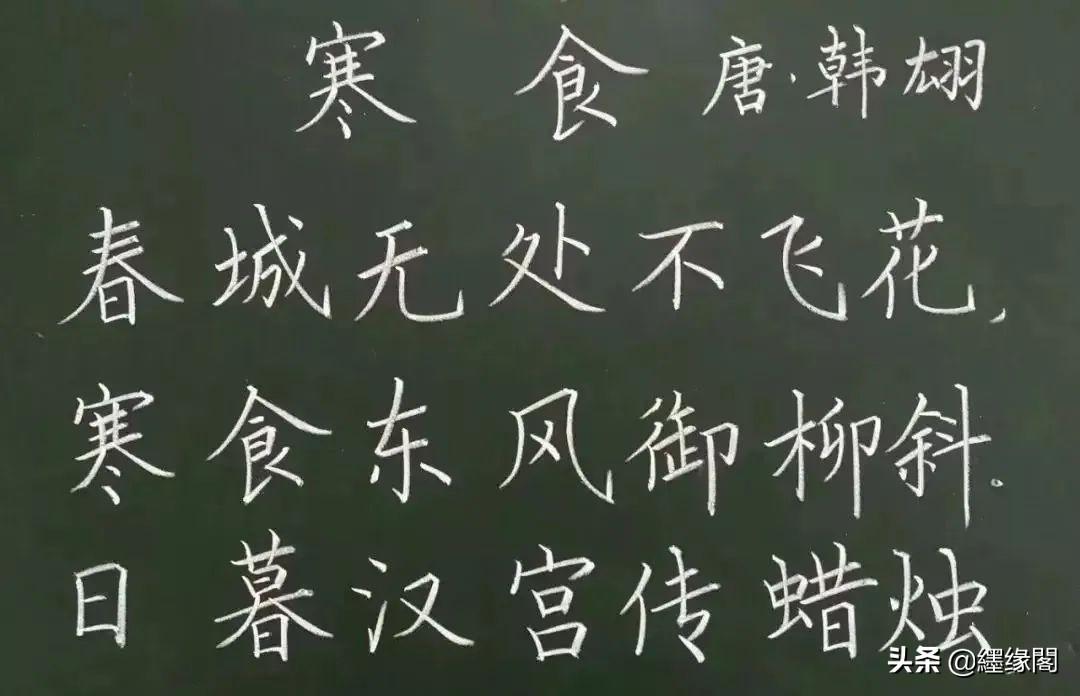 寒食 唐·韩翃
春城无处不飞花，
寒食东风御柳斜。
日暮汉宫传蜡烛
头条 @纆缘閣